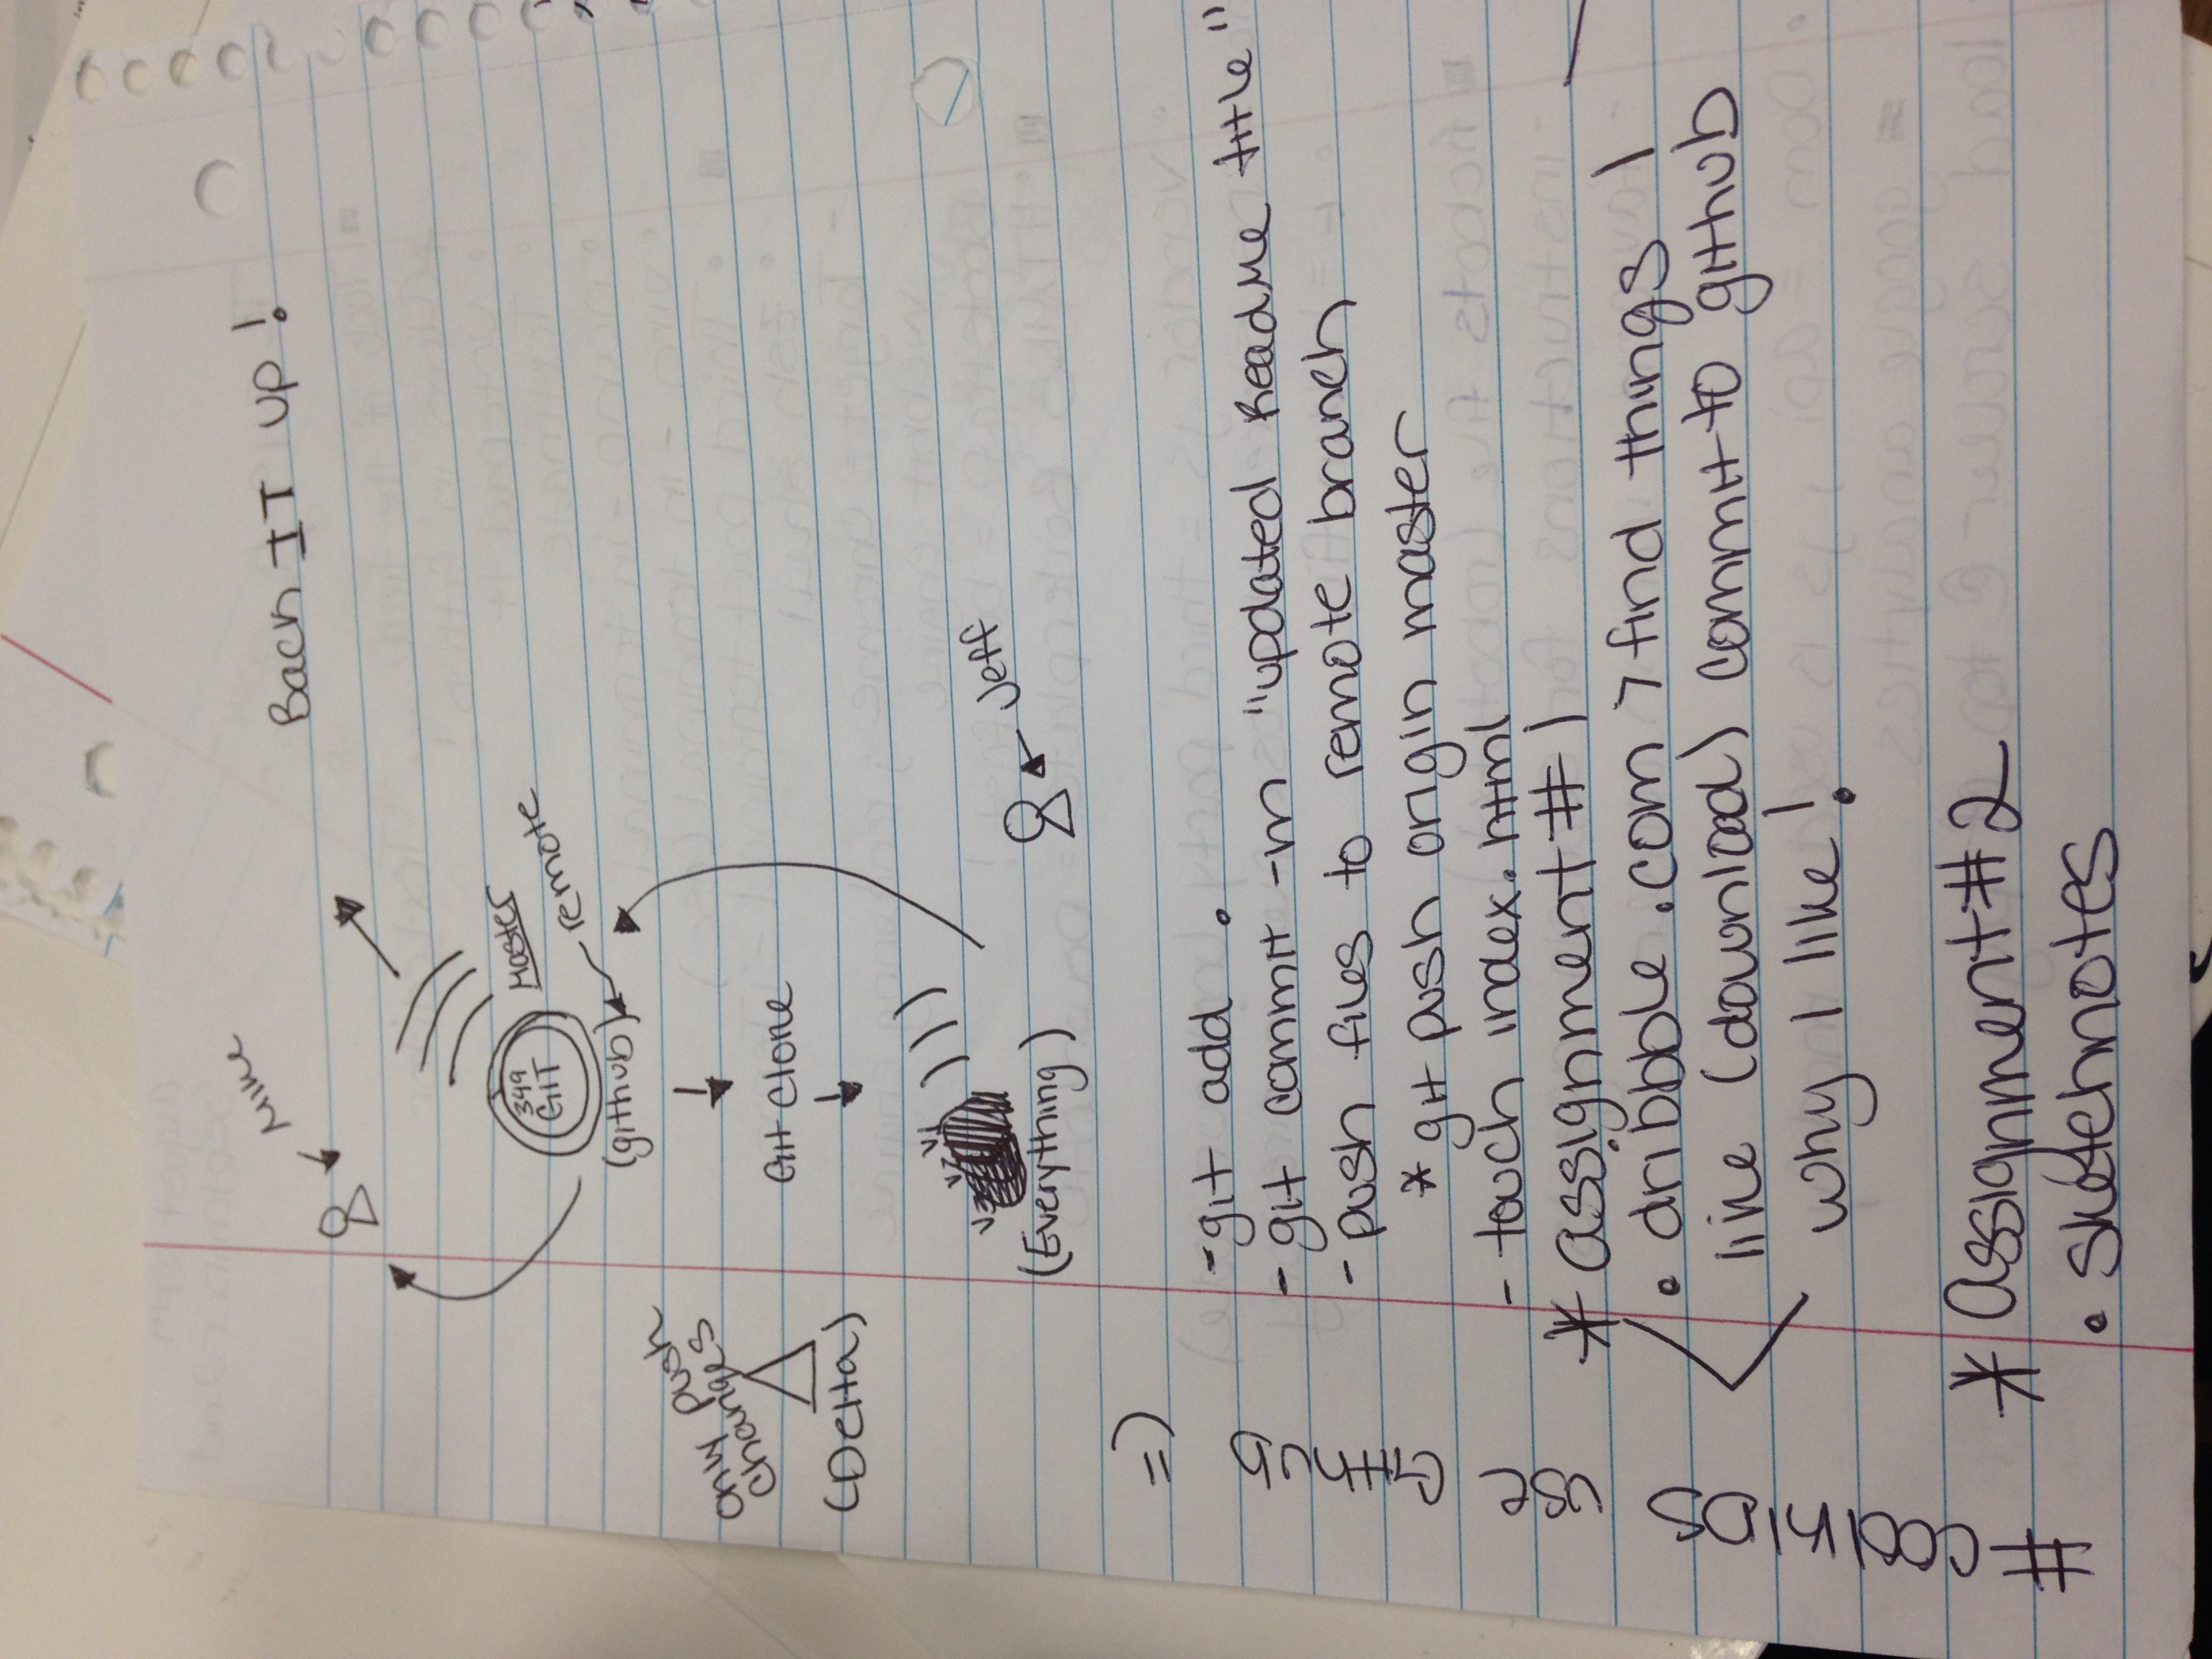 Mike
Back IT up!
349
GIT
Master
remote
(github)
only push
changes
(Delta)
Git clone
V1
V2
V3
(Everything)
Jeff
-git add .
-git commit -m "updated ReadMe title"
-push files to remote branch
*git push origin master
-touch index.html
* assignment #1
• dribbble.com > find things I
like (download) commit to github
why I like!
* Assignment #2
• sketchnotes
#coolkids use Github =)